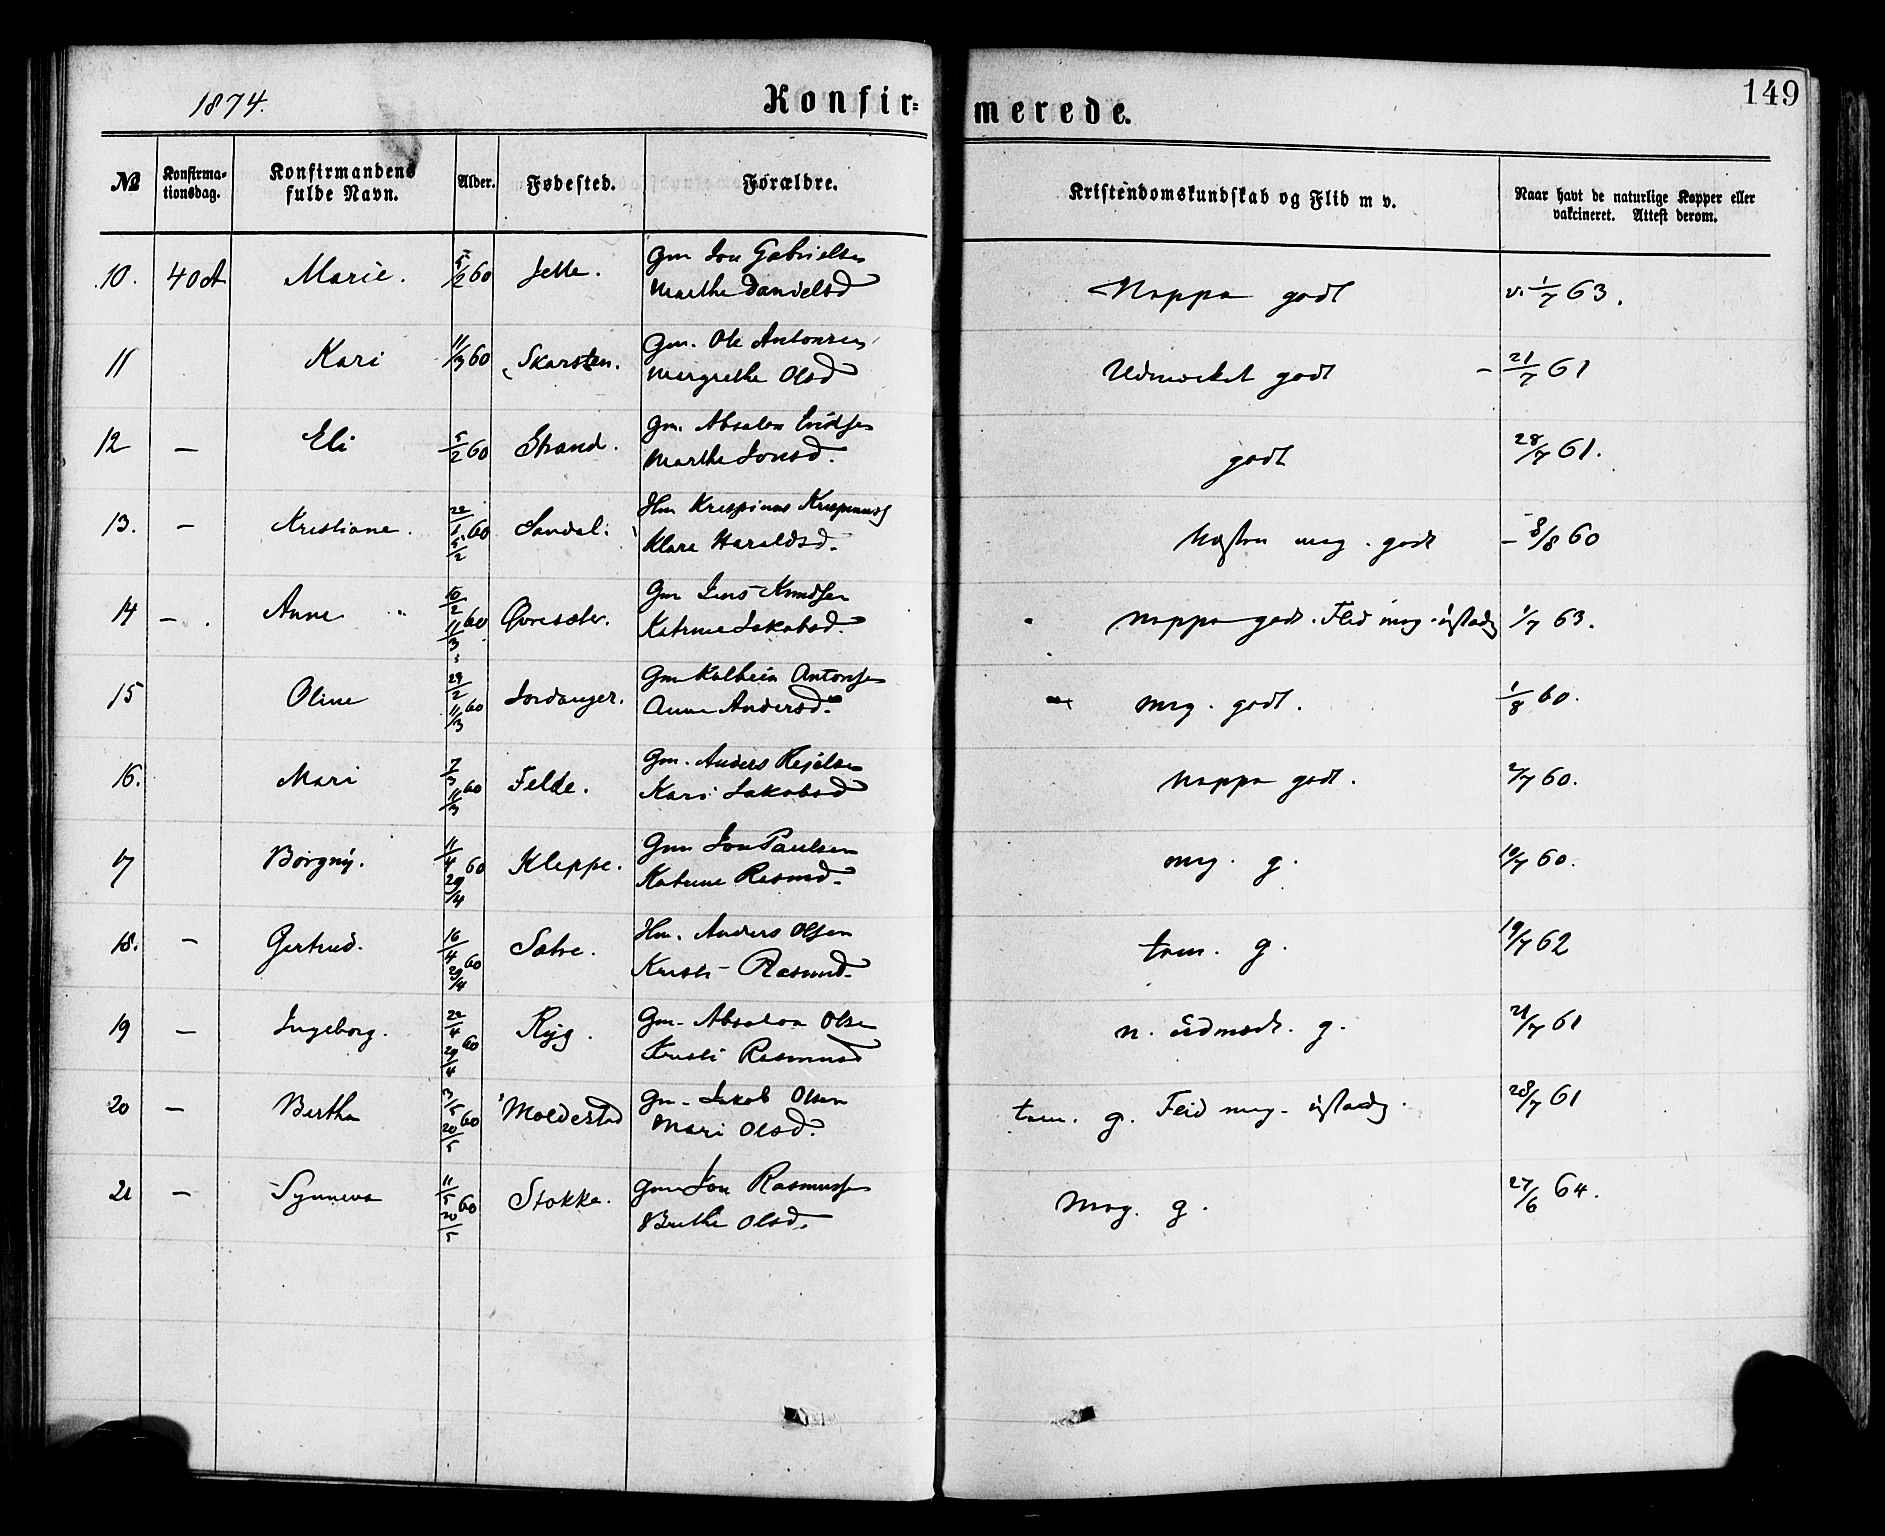 1874.
Konfir-
merede.
149
№
Konfirma-
tionsdag.
Konfirmandens
fulde Navn.
Alder.
Fødested.
Forældre.
Kristendomskundskab og Flid m v.
Naar havt de naturlige Kopper eller
vakcineret. Attest derom.
10. Marie. 5/2 60 Gm Jon Gabrielsen
Marthe Danielsd
Noppa godt v. 1/7 63.
11 Kari 11/3 60 Skarsten. Gm. Ole Antonsen
Margrethe Olsd
Udmærket godt - 21/7 61
12 — Eli 5/2 60 Strand. Gm. Absalon
Marthe Jonsd.
godt 28/7 61.
13. — Kristiane. 22/1 60 5/2 Sandal. Hm Krispinus Krispinuss
Klara Haraldsd.
Næsten meg. godt - 8/8 60
14 — Anne 10/2 60 11/3 Øvresæter. Gm Jens Knudsen
Katrine Jakobsd.
Noppa godt. Flid meg. ustadig 1/7 63.
15 Oline 29/2 60 11/3 Jordanger. Gm Kolbein Antonsen
Anne Andersd.
meg. godt. 1/8 60.
16. Mari 7/3 60 11/3 Felde. Gm. Anders
Kari Jakobsd
Noppa godt. 2/7 60.
17 Borgny. 11/4 60 29/4 Kleppe. Gm Jon Paulsen
Katrine Rasmd.
meg. g. 10/7 60.
18. — Gertrud. 16/4 60 29/4 Sætre. Hm. Anders Olsen
Kristi Rasmd.
tem. g. 19/7 62
19 — Ingeborg. 22/4 60 29/4 Ryg. Gm. Absalon Olsen
Kristi Rasmusd
n. udmærk. g. 21/7 61
20 — Bertha 3/5 60 20/5 Moldestad Gm. Jakob Olsen
Mari Olsd.
tem. g. Flid meg. ustadig. 28/7 61
21 — Synneva 11/5 60 20/5 Stokke. Gm Jon Rasmussen
Brithe Olsd.
Meg. g. 27/6 64.